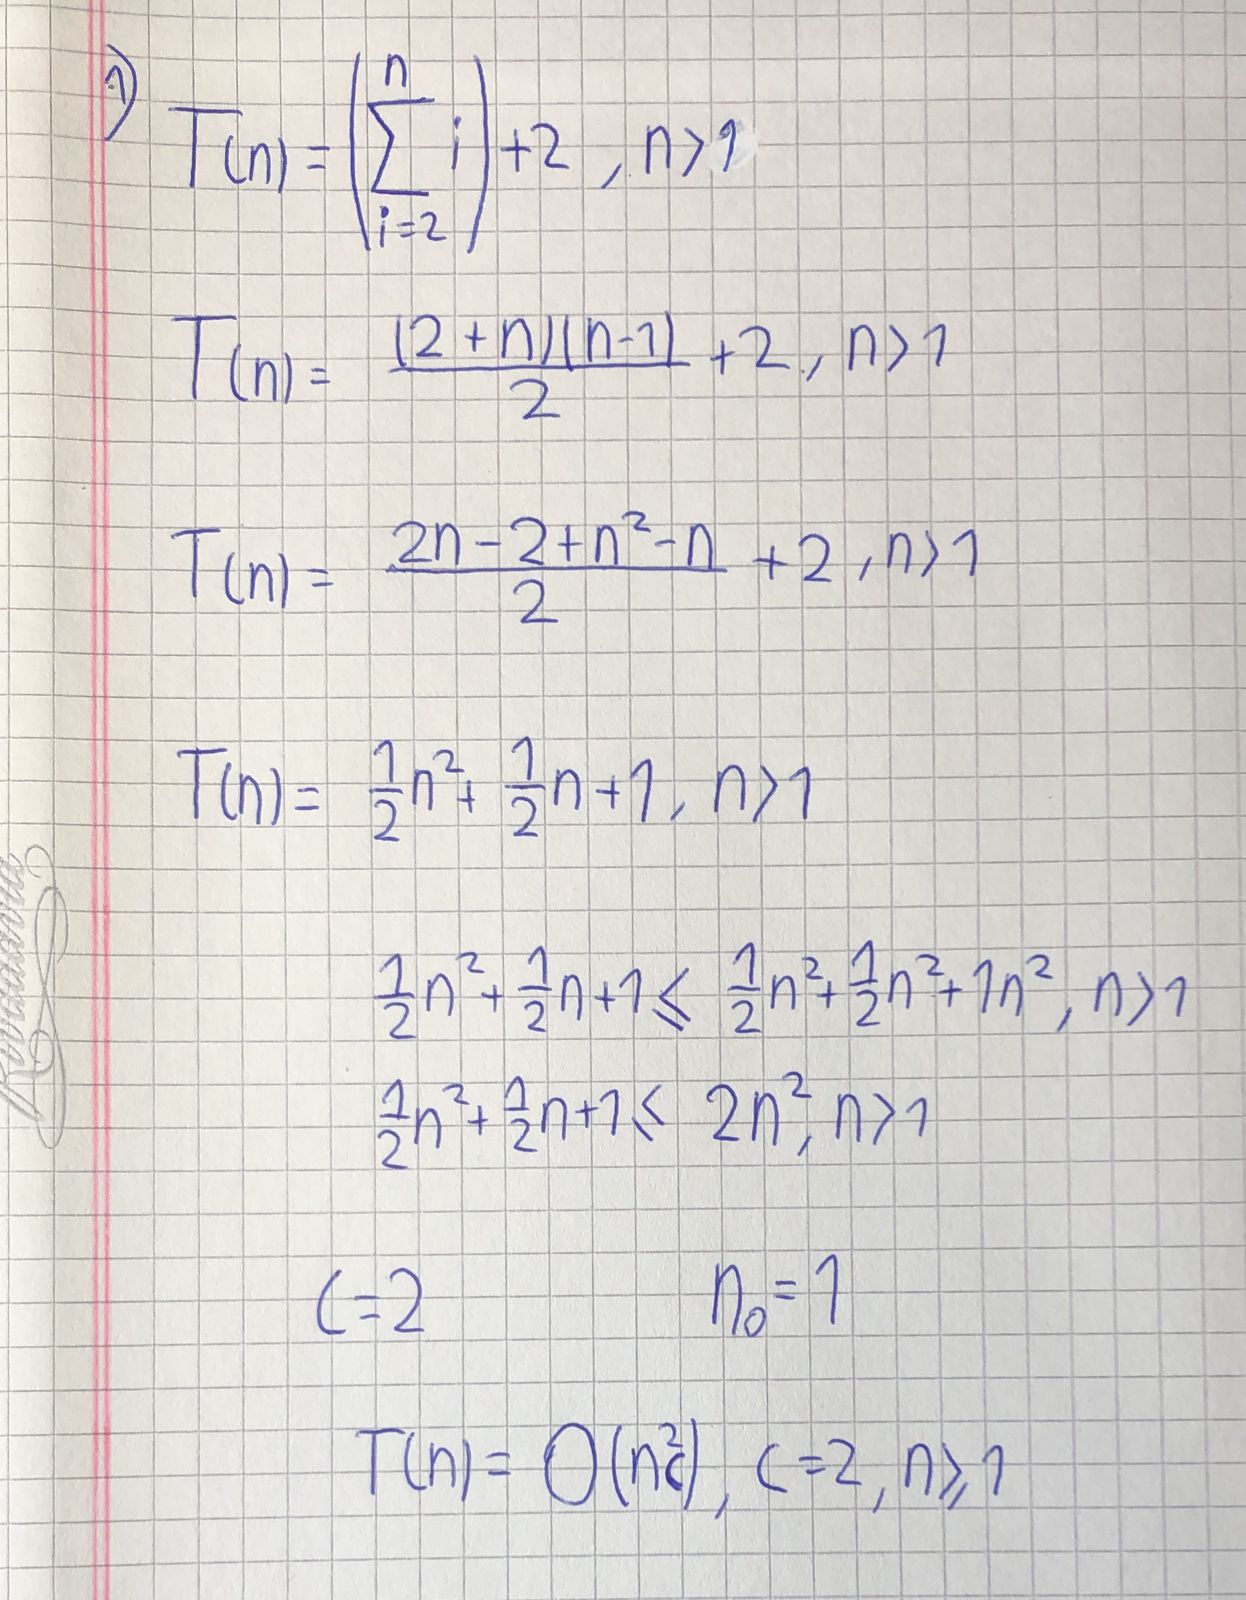 1)
T(n) = (∑_{i=2}^{n} i) + 2 , n > 1
T(n) = (2+n)(n-1)/2 + 2 , n > 1
T(n) = (2n - 2 + n² - n)/2 + 2 , n > 1
T(n) = 1/2 n² + 1/2 n + 1 , n > 1
1/2 n² + 1/2 n + 1 ≤ 1/2 n² + 1/2 n² + 1n² , n > 1
1/2 n² + 1/2 n + 1 ≤ 2n² , n > 1
C = 2 n₀ = 1
T(n) = O(n²) , C = 2 , n ≥ 1